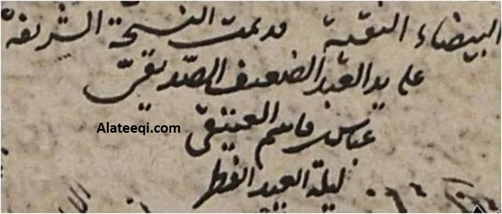 البيضاء النقية قد تمت النسخة الشريفة
على يد العبد الضعيف الصديقي
عباس قاسم العتيقي
Alateeqi.com
ليلة العيد الفطر